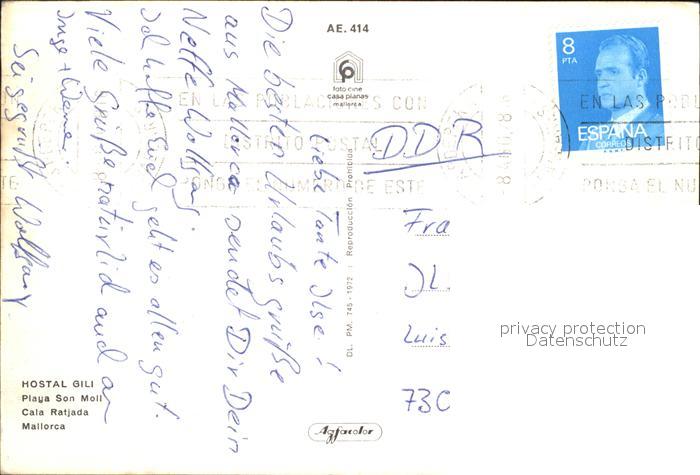 AE. 414
foto cine
casa planas
mallorca
8
PTA
ESPAÑA
CORREOS
EN LAS POBLACIONES CON
DISTRITO POSTAL
PONGA EL NUMERO DE ESTE
EN LAS POBL
DISTRITO
PONGA EL NU
Liebe Tante Ilse!
Die besten Urlaubsgrüße
aus Mallorca sendet Dir Dein
Neffe Wolfgang.
Ich hoffe Euch geht es allen gut.
Viele Grüße natürlich auch an
Inge + Werner.
Sei gegrüßt Wolfgang
DDR
Fra
Luis
73C
DL. PM. 745-1972 | Reproducción Prohibida
privacy protection
Datenschutz
HOSTAL GILI
Playa Son Moll
Cala Ratjada
Mallorca
Agfacolor